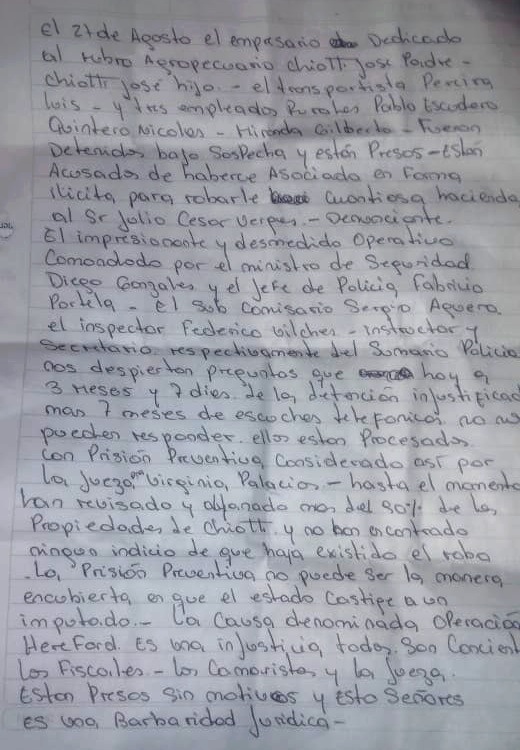 El 27 de Agosto el empesario Dedicado
al rubro Agropecuario chiotti Jose Padre -
chiotti José hijo. - el transportista Pereira
luis - y tres empleados Rurales Pablo Escudero
Quintero Nicolas - Miranda Gilberto - Fueron
Detenidos bajo Sospecha y están Presos - están
Acusados de haberce Asociado en Forma
ilicita para robarle cuantiosa hacienda
al Sr Julio Cesar Verges. - Denunciante.
El impresionante y desmedido Operativo
Comandado por el ministro de Seguridad
Diego Gonzales y el Jefe de Policia Fabricio
Portela - el Sub Comisario Sergio Aguero
el inspector Federico vilches - instructor y
Secretario respectivamente del Sumario Policia
nos despiertan preguntas que hoy a
3 meses y 7 dias de la detención injustificad
mas 7 meses de escuchas telefonicas no no
pueden responder. ellos estan Procesados
con Prisión Preventiva Considerado así por
la Jueza Virginia Palacios - hasta el momento
han revisado y allanado mas del 80% de las
Propiedades de Chiotti y no han encontrado
ningun indicio de que haya existido el robo
. La Prisión Preventiva no puede ser la manera
encubierta en que el estado Castige a un
imputado. - La Causa denominada Operación
Hereford. Es una injusticia todos. Son Concient
los Fiscales. - los Camaristas y la Jueza.
Estan Presos Sin motivos y Esto Señores
es una Barbaridad Juridica -